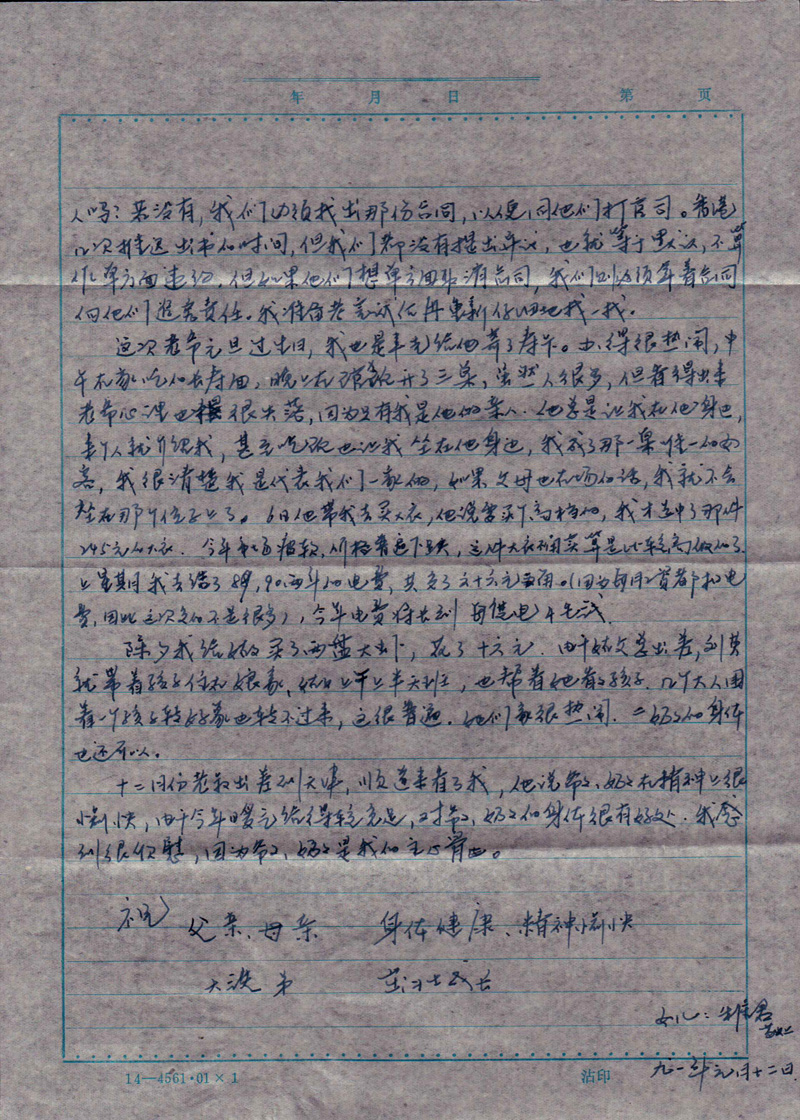 年 月 日 第 页
人吗?若没有,我们必须找出那份合同,以便同他们打官司。香港
几次推迟出书的时间,但我们都没有提出异议,也就等于默认,不算
作单方面违约,但如果他们想单方面取消合同,我们则必须拿着合同
向他们追究责任。我准备考完试后再重新仔细地找一找。
这次老爷元旦过生日,我也是事先给他寄了寿卡。办得很热闹,中
午在家吃的长寿面,晚上在 开了三桌,虽然人很多,但看得出来
老爷心理也很失落,因为只有我是他的亲人。他总是让我在他身边,
来个人就介绍我,甚至吃饭也让我坐在他身边,我成了那一桌唯一的女
亲,我很清楚我是代表我们一家的,如果父母也在场的话,我就不会
坐在那个位子上了。6日他带我去买大衣,他说要买个高档的,我才选中了那件
245元的大衣.今年市场疲软,价格普遍下跌,这件大衣 算是比较高级的了
上星期我去结了89,90两年的电费,共交了六十六元五角。(因为每月工资都扣电
费,因此这次交的不是很多),今年电费将长到每度电
除夕我给奶奶买了两盘大虾,花了十六元.由于 总出差,刘英
就带着孩子住在娘家, 上午上半天班,也帮着她看孩子.几个大人围
着一个孩子转好象也转不过来,这很普遍.她们家很热闹.二奶奶的身体
也还可以。
十二月份老叔出差到天津,顺道来看了我,他说爷爷、奶奶在精神上很
愉快,由于今年日 给得较充足,对爷爷、奶奶的身体很有好处.我感
到很欣慰,因为爷爷、奶奶是我的主心骨。
祝
父亲、母亲 身体健康、精神愉快
大波弟 茁壮成长
女儿:
九一年元月十二日
14—4561·01×1 沽印